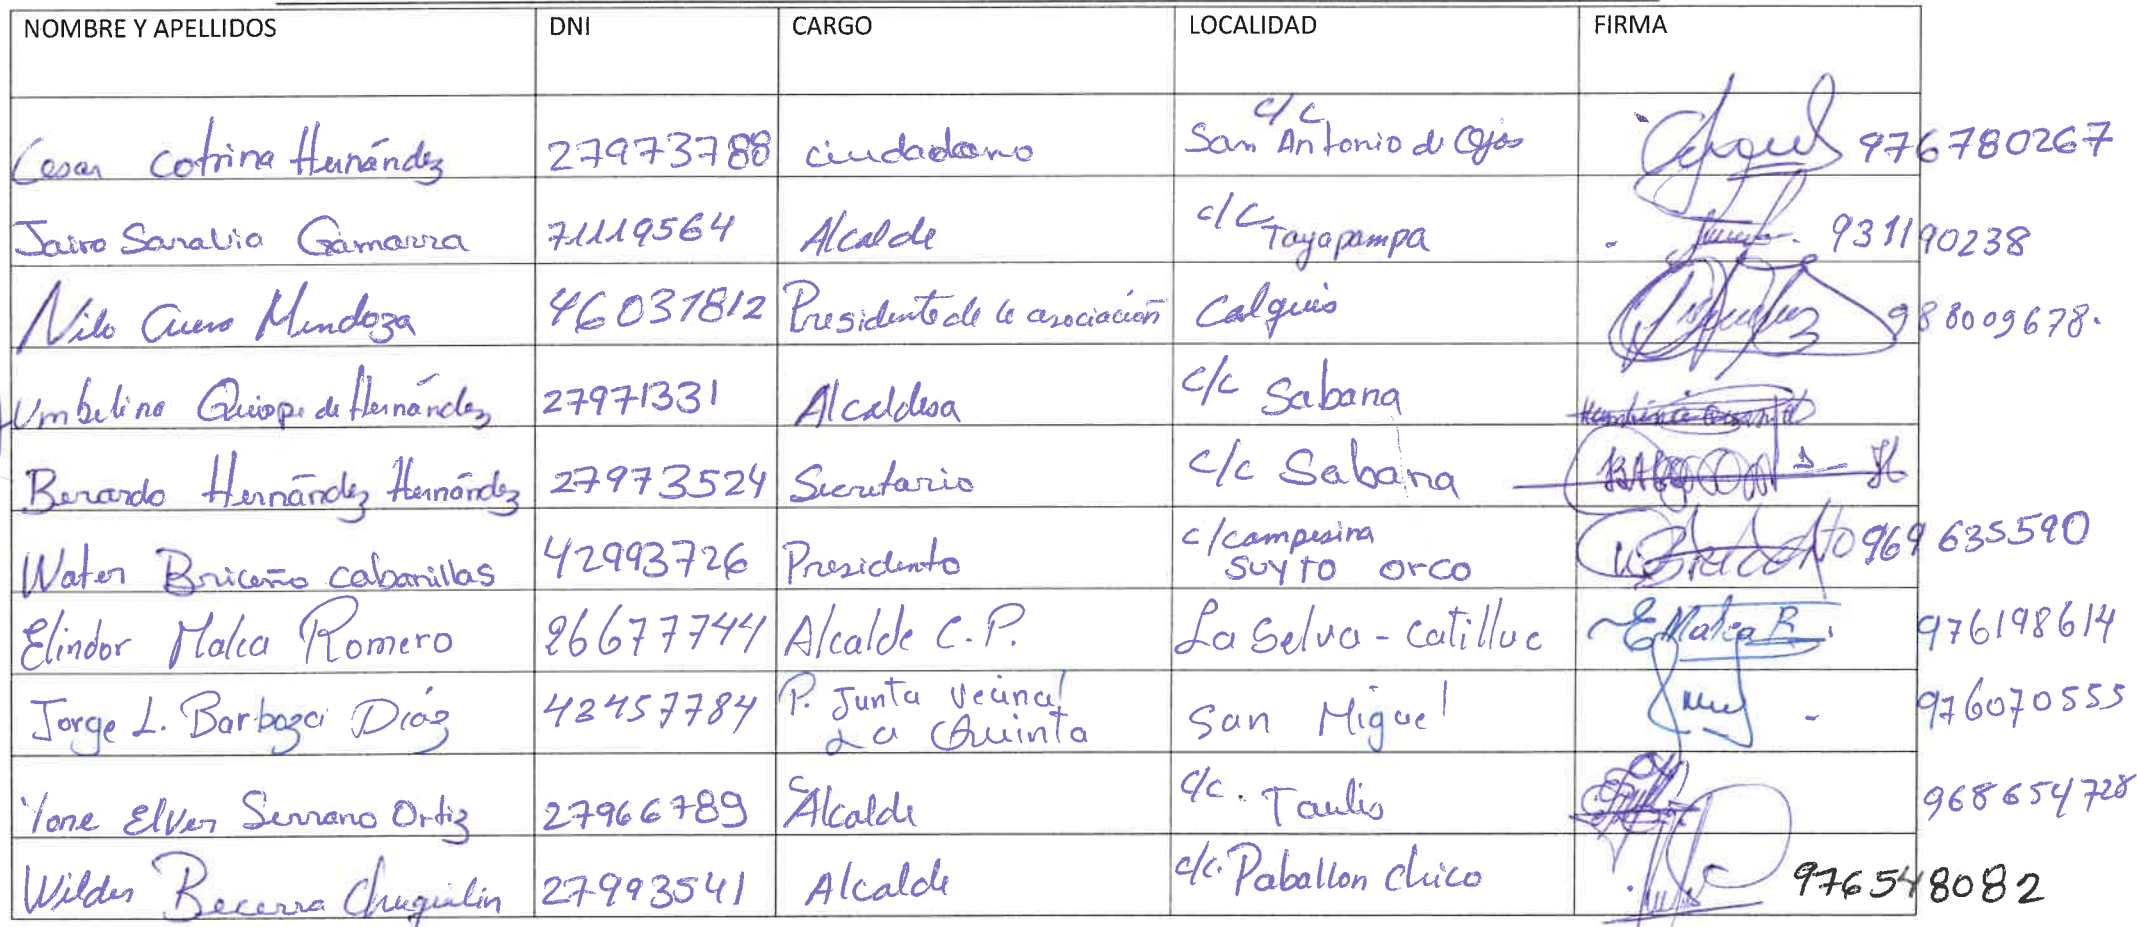 NOMBRE Y APELLIDOS DNI CARGO LOCALIDAD FIRMA
Cesar Cotrina Hernández 27973788 ciudadano c/c San Antonio de Ojos 976780267
Jairo Saravia Gamarra 71119564 Alcalde c/c Tayapampa 931190238
Nilo Cueva Mendoza 46031812 Presidente de la asociación Calquis 988009678.
Umbelina Quispe de Hernández 27971331 Alcaldesa c/c Sabana
Berardo Hernández Hernández 27973524 Secretario c/c Sabana
Water Briceño cabanillas 42993726 Presidente c/campesina SUYTO ORCO 969635590
Elindor Malca Romero 26677744 Alcalde C.P. La Selva - Catilluc E Malca R. 976198614
Jorge L. Barboza Díaz 42457784 P. Junta Vecinal La Quinta San Miguel 976070555
Yone Elver Serrano Ortiz 27966789 Alcalde c/c. Taulis 968654728
Wilder Becerra Chuquilin 27993541 Alcalde c/c. Paballon Chico 976548082